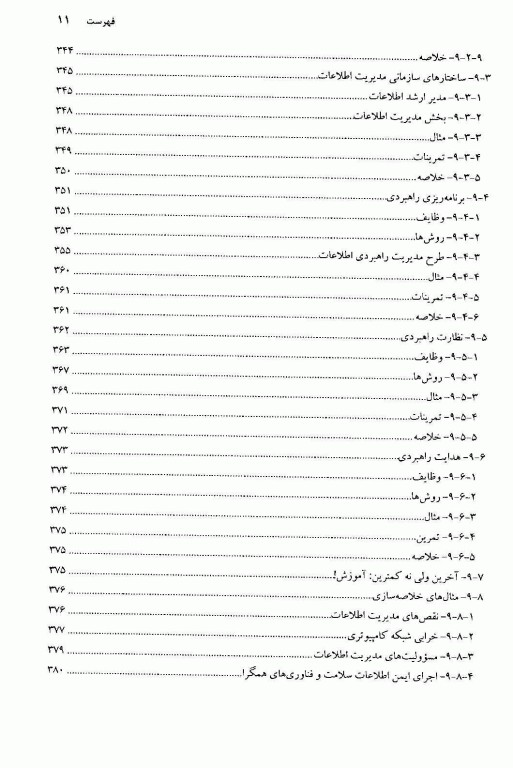 فهرست ۱۱
۹-۲-۹- خلاصه ........ ۳۴۴
۹-۳- ساختارهای سازمانی مدیریت اطلاعات ........ ۳۴۵
۹-۳-۱- مدیر ارشد اطلاعات ........ ۳۴۵
۹-۳-۲- بخش مدیریت اطلاعات ........ ۳۴۸
۹-۳-۳- مثال ........ ۳۴۸
۹-۳-۴- تمرینات ........ ۳۴۹
۹-۳-۵- خلاصه ........ ۳۵۰
۹-۴- برنامه‌ریزی راهبردی ........ ۳۵۱
۹-۴-۱- وظایف ........ ۳۵۱
۹-۴-۲- روش‌ها ........ ۳۵۳
۹-۴-۳- طرح مدیریت راهبردی اطلاعات ........ ۳۵۵
۹-۴-۴- مثال ........ ۳۶۰
۹-۴-۵- تمرینات ........ ۳۶۱
۹-۴-۶- خلاصه ........ ۳۶۱
۹-۵- نظارت راهبردی ........ ۳۶۲
۹-۵-۱- وظایف ........ ۳۶۳
۹-۵-۲- روش‌ها ........ ۳۶۷
۹-۵-۳- مثال ........ ۳۶۹
۹-۵-۴- تمرینات ........ ۳۷۱
۹-۵-۵- خلاصه ........ ۳۷۲
۹-۶- هدایت راهبردی ........ ۳۷۳
۹-۶-۱- وظایف ........ ۳۷۳
۹-۶-۲- روش‌ها ........ ۳۷۴
۹-۶-۳- مثال ........ ۳۷۴
۹-۶-۴- تمرین ........ ۳۷۵
۹-۶-۵- خلاصه ........ ۳۷۵
۹-۷- آخرین ولی نه کمترین: آموزش! ........ ۳۷۵
۹-۸- مثال‌های خلاصه‌سازی ........ ۳۷۶
۹-۸-۱- نقص‌های مدیریت اطلاعات ........ ۳۷۶
۹-۸-۲- خرابی شبکه کامپیوتری ........ ۳۷۷
۹-۸-۳- مسؤولیت‌های مدیریت اطلاعات ........ ۳۷۹
۹-۸-۴- اجرای ایمن اطلاعات سلامت و فناوری‌های همگرا ........ ۳۸۰